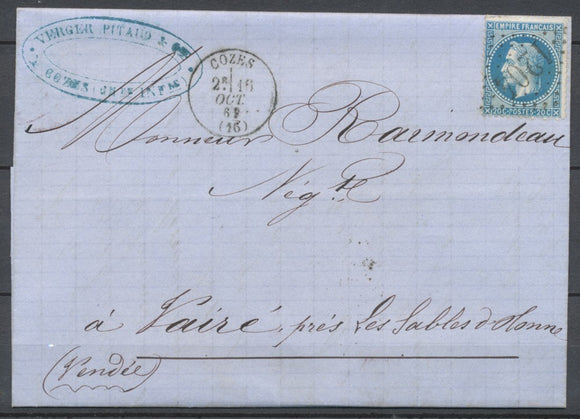 VERGER PITAUD & Cie
A COZES (CHte INFre)
COZES
2E 16
OCT.
69
(16)
EMPIRE FRANÇAIS
20C POSTES 20C
Monsieur Raimondeau
Négt
à Vairé, près Les Sables d'Olonne
(Vendée)